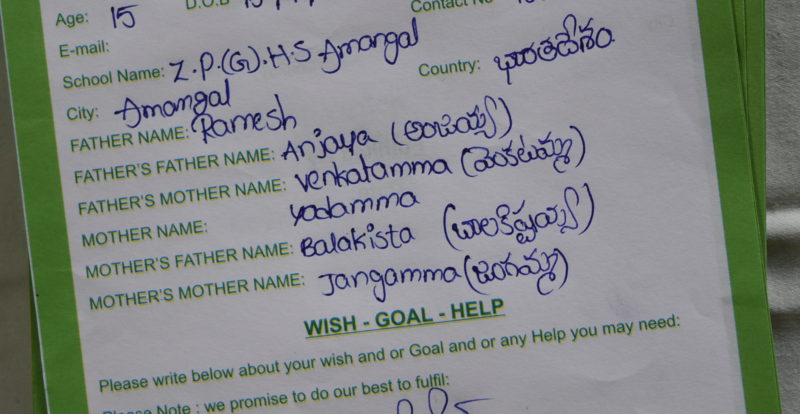 Age: 15
D.O.B
Contact No
E-mail:
School Name: Z.P.(G).H.S Amangal
City: Amangal
Country: భారతదేశం
FATHER NAME: Ramesh
FATHER'S FATHER NAME: Anjaya (అంజయ్య)
FATHER'S MOTHER NAME: Venkatamma (వెంకటమ్మ)
MOTHER NAME: Yadamma
MOTHER'S FATHER NAME: Balakista (బాలకిష్టయ్య)
MOTHER'S MOTHER NAME: Jangamma (జంగమ్మ)
WISH - GOAL - HELP
Please write below about your wish and or Goal and or any Help you may need:
Please Note : we promise to do our best to fulfil: